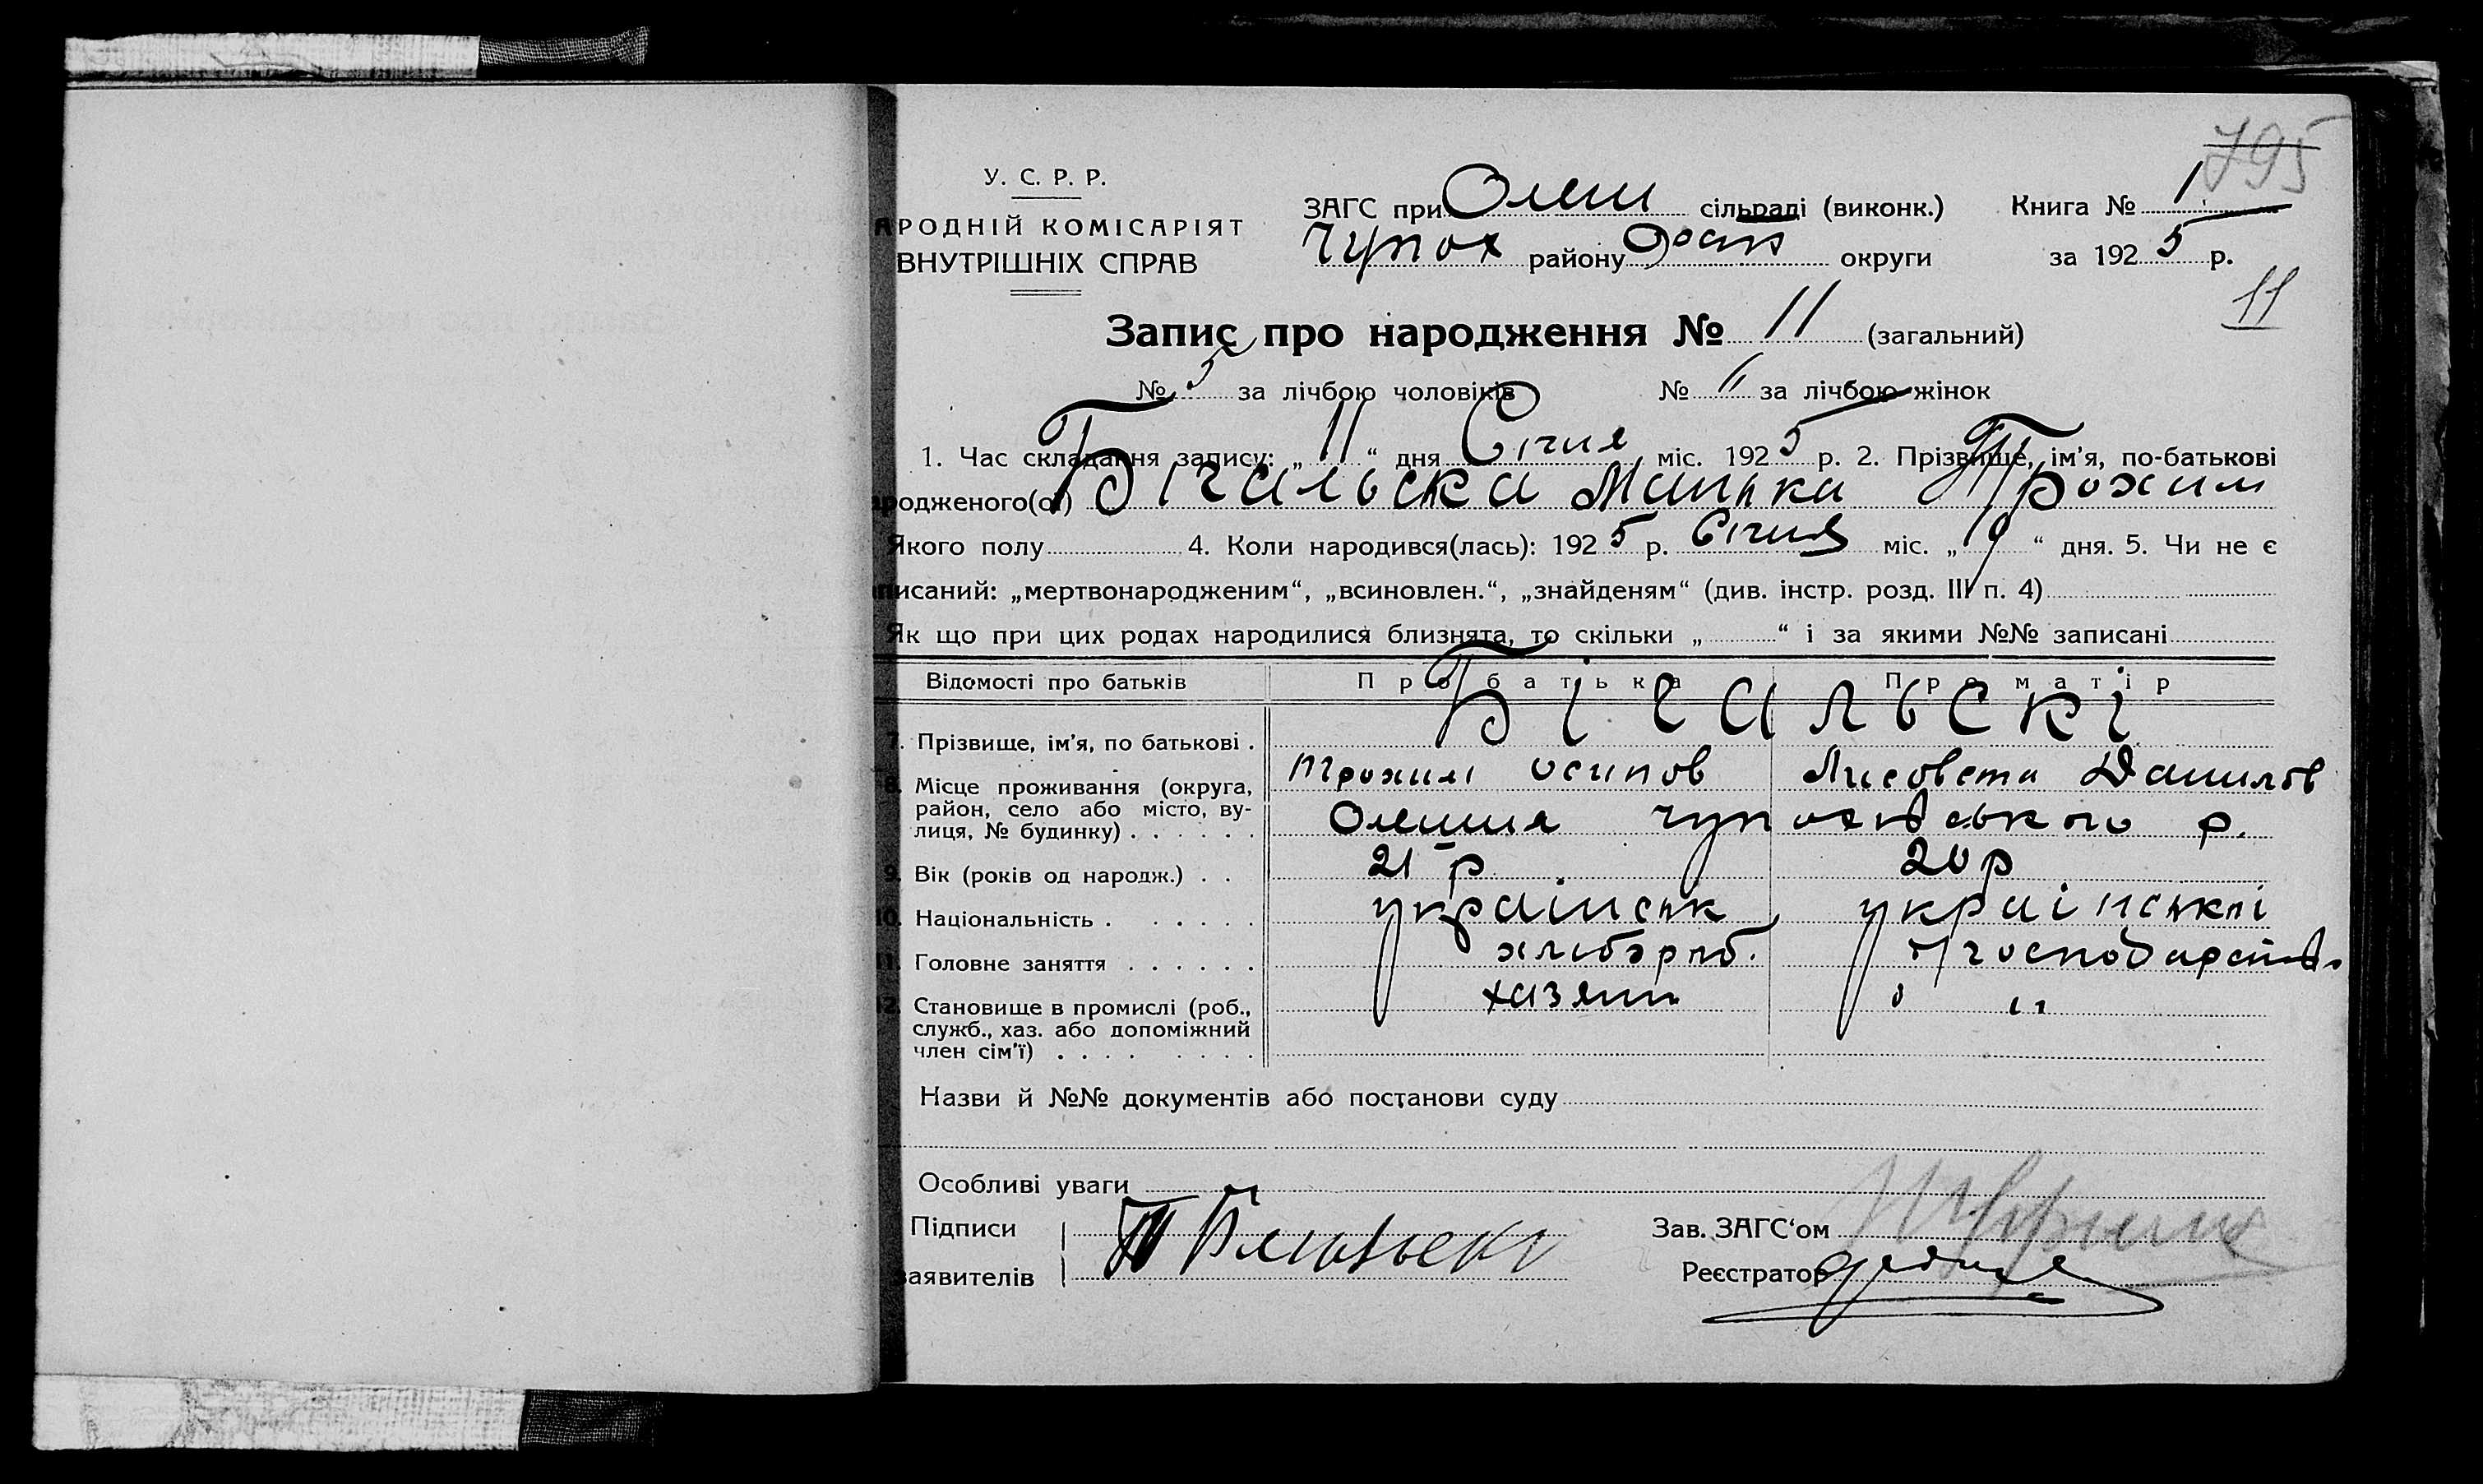 795
У. С. Р. Р.
АРОДНІЙ КОМІСАРІЯТ
ВНУТРІШНІХ СПРАВ
ЗАГС при Олеш сільраді (виконк.) Книга № 1
Чупох району округи за 1925 р.
11
Запис про народження № 11 (загальний)
№ 5 за лічбою чоловіків № за лічбою жінок
1. Час складання запису: „11“ дня Січня міс. 1925 р. 2. Прізвище, ім'я, по-батькові
родженого(ої) Бігальска Манька Трохим
Якого полу 4. Коли народився(лась): 1925 р. Січня міс. „ “ дня. 5. Чи не є
писаний: „мертвонародженим“, „всиновлен.“, „знайденям“ (див. інстр. розд. III п. 4)
Як що при цих родах народилися близнята, то скільки „ “ і за якими №№ записані
Відомості про батьків Про батька Про матір
7. Прізвище, ім'я, по батькові . Бігальскі
Трохим Осипов Лисовета Данилов
8. Місце проживання (округа,
район, село або місто, ву-
лиця, № будинку) . . . . . . Олешня чупахівського р.
9. Вік (років од народж.) . . 21 р 20 р
10. Національність . . . . . . українськ українські
11. Головне заняття . . . . . . хлібороб. господарств.
12. Становище в промислі (роб.,
служб., хаз. або допоміжний
член сім'ї) . . . . . . . . хазяин „
Назви й №№ документів або постанови суду
Особливі уваги
Підписи
заявителів
Зав. ЗАГС'ом
Реєстратор